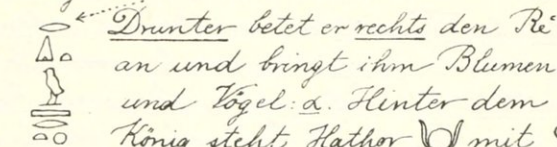 Drunter betet er rechts den Rē
an und bringt ihm Blumen
und Vögel: α. Hinter dem
König steht Hathor mit